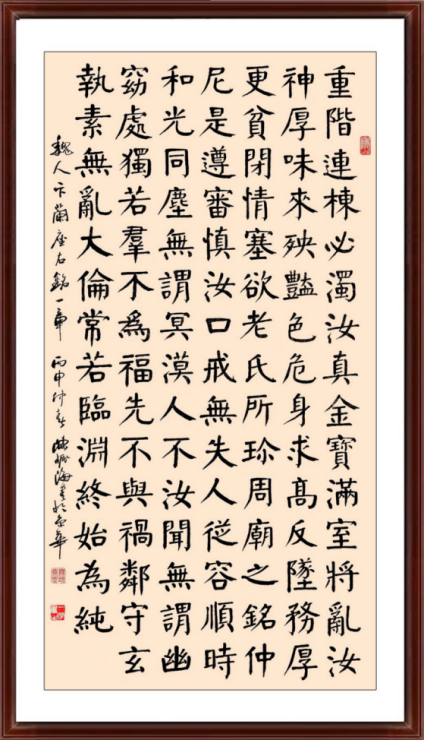 重階連棟必濁汝真金寶滿室將亂汝
神厚味來殃豔色危身求髙反墜務厚
更貧閉情塞欲老氏所珎周廟之銘仲
尼是遵審慎汝口戒無失人從容順時
和光同塵無謂冥漠人不汝聞無謂幽
窈處獨若羣不爲福先不與禍鄰守玄
執素無亂大倫常若臨淵終始為純
魏人卞蘭座右銘一章 丙申仲春 海書於金華